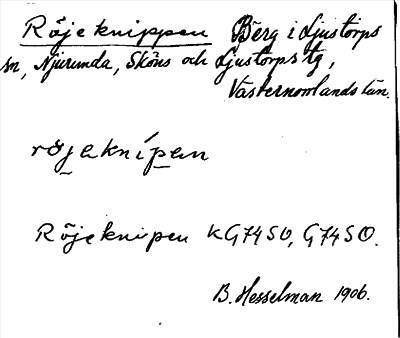 Röjeknippen Berg i Ljustorps
sn, Njurunda, Sköns och Ljustorps tg,
Västernorrlands län.
röjeknípen
Röjeknipen KG74SO, G74SO.
B. Hesselman 1906.